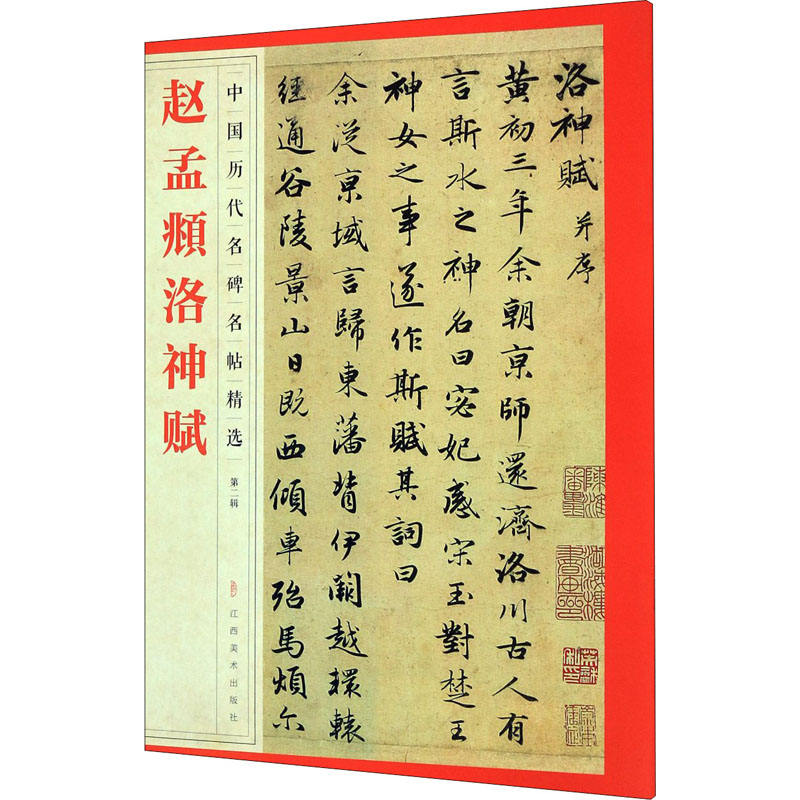 赵孟頫洛神赋
中国历代名碑名帖精选
第二辑
江西美术出版社
洛神赋 并序
黄初三年余朝京師還濟洛川古人有
言斯水之神名曰宓妃感宋玉對楚王
神女之事遂作斯賦其詞曰
余從京域言歸東藩背伊闕越轘轅
經通谷陵景山日既西傾車殆馬煩尔